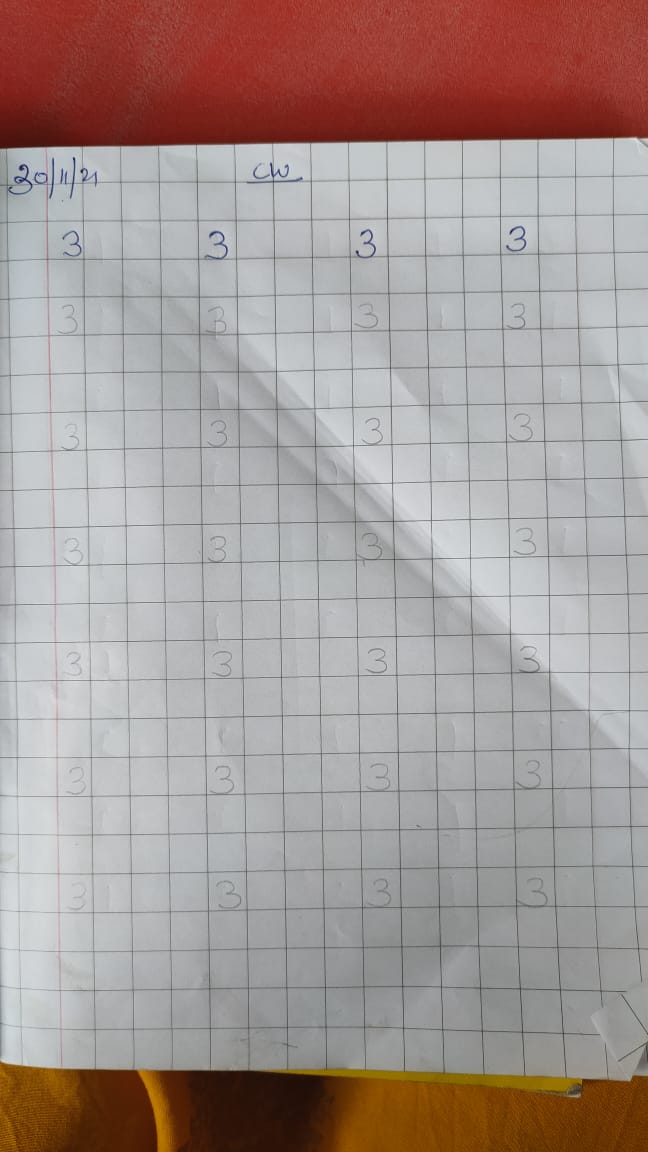 30/11/21 CW
3 3 3 3
3 3 3 3
3 3 3 3
3 3 3 3
3 3 3 3
3 3 3 3
3 3 3 3